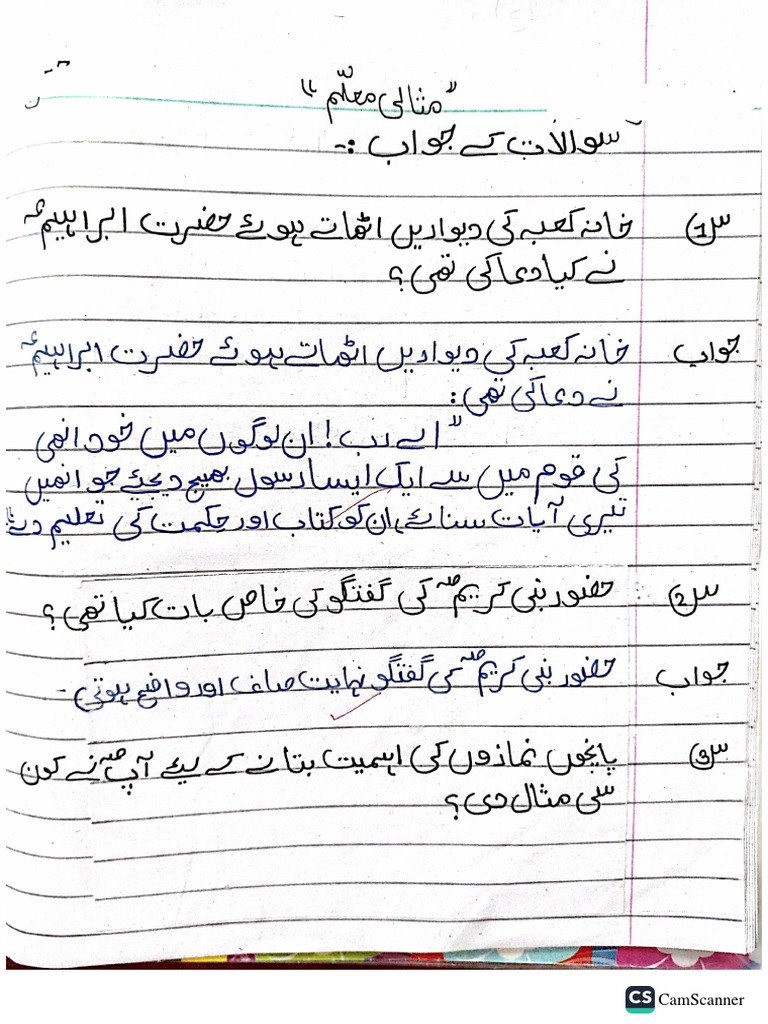 "مثالی معلّم"
سوالات کے جواب :-
س1 خانہ کعبہ کی دیواریں اٹھاتے ہوئے حضرت ابراہیمؑ
نے کیا دعا کی تھی؟
جواب خانہ کعبہ کی دیواریں اٹھاتے ہوئے حضرت ابراہیمؑ
نے دعا کی تھی:
"اے رب! ان لوگوں میں خود انھی
کی قوم میں سے ایک ایسا رسول بھیج دیجئے جو انھیں
تیری آیات سنائے، ان کو کتاب اور حکمت کی تعلیم دے"
س2 حضور نبی کریمؐ کی گفتگو کی خاص بات کیا تھی؟
جواب حضور نبی کریمؐ کی گفتگو نہایت صاف اور واضح ہوتی۔
س3 پانچوں نمازوں کی اہمیت بتانے کے لیئے آپؐ نے کون
سی مثال دی؟
CS CamScanner